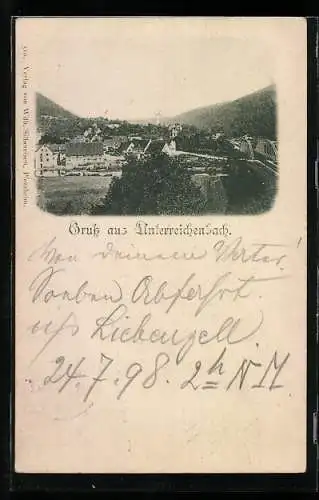 Verlag von Wilh. Silbereisen, Pforzheim.
Gruß aus Unterreichenbach.
Von deinem Verter!
Soeben Abfahrt.
Liebenzell.
24.7.98. 2h NM